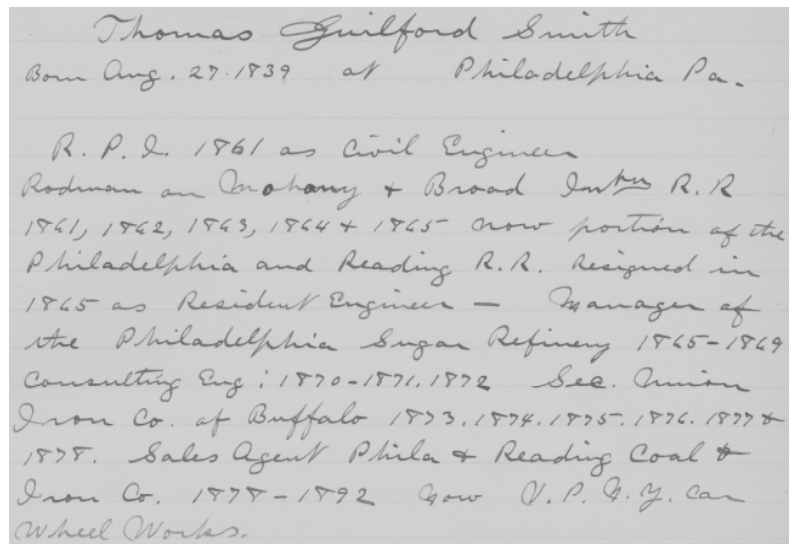 Thomas Guilford Smith
Born Aug. 27. 1839 at Philadelphia Pa.
R. P. I. 1861 as Civil Engineer
Rodman on Mohony & Broad R. R
1861, 1862, 1863, 1864 & 1865 now portion of the
Philadelphia and Reading R. R. Resigned in
1865 as Resident Engineer — Manager of
the Philadelphia Sugar Refinery 1865-1869
Consulting Eng: 1870-1871. 1872 Sec. Union
Iron Co. of Buffalo 1873. 1874. 1875. 1876. 1877 &
1878. Sales Agent Phila & Reading Coal &
Iron Co. 1878-1892 Now V. P. N. Y. Car
Wheel Works.